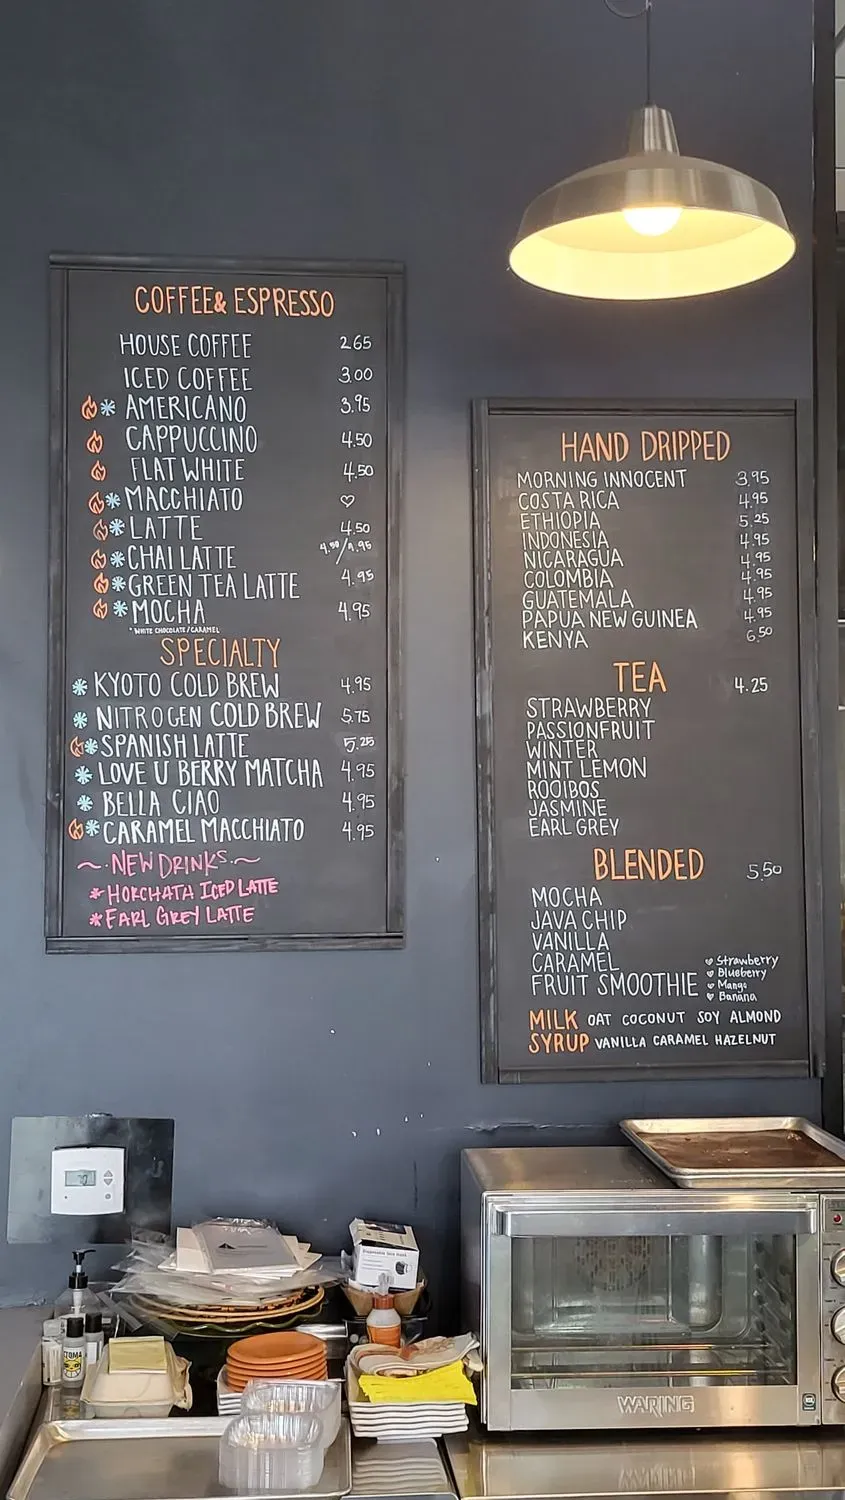 COFFEE & ESPRESSO
HOUSE COFFEE 2.65
ICED COFFEE 3.00
AMERICANO 3.95
CAPPUCCINO 4.50
FLAT WHITE 4.50
MACCHIATO ♡
LATTE 4.50
CHAI LATTE 4.50/4.95
GREEN TEA LATTE 4.95
MOCHA 4.95
* WHITE CHOCOLATE/CARAMEL
SPECIALTY
KYOTO COLD BREW 4.95
NITROGEN COLD BREW 5.75
SPANISH LATTE 5.25
LOVE U BERRY MATCHA 4.95
BELLA CIAO 4.95
CARAMEL MACCHIATO 4.95
~·NEW DRINKS·~
* HORCHATA ICED LATTE
* EARL GREY LATTE
HAND DRIPPED
MORNING INNOCENT 3.95
COSTA RICA 4.95
ETHIOPIA 5.25
INDONESIA 4.95
NICARAGUA 4.95
COLOMBIA 4.95
GUATEMALA 4.95
PAPUA NEW GUINEA 4.95
KENYA 6.50
TEA 4.25
STRAWBERRY
PASSIONFRUIT
WINTER
MINT LEMON
ROOIBOS
JASMINE
EARL GREY
BLENDED 5.50
MOCHA
JAVA CHIP
VANILLA
CARAMEL
FRUIT SMOOTHIE
♥ Strawberry
♥ Blueberry
♥ Mango
♥ Banana
MILK OAT COCONUT SOY ALMOND
SYRUP VANILLA CARAMEL HAZELNUT
WARING